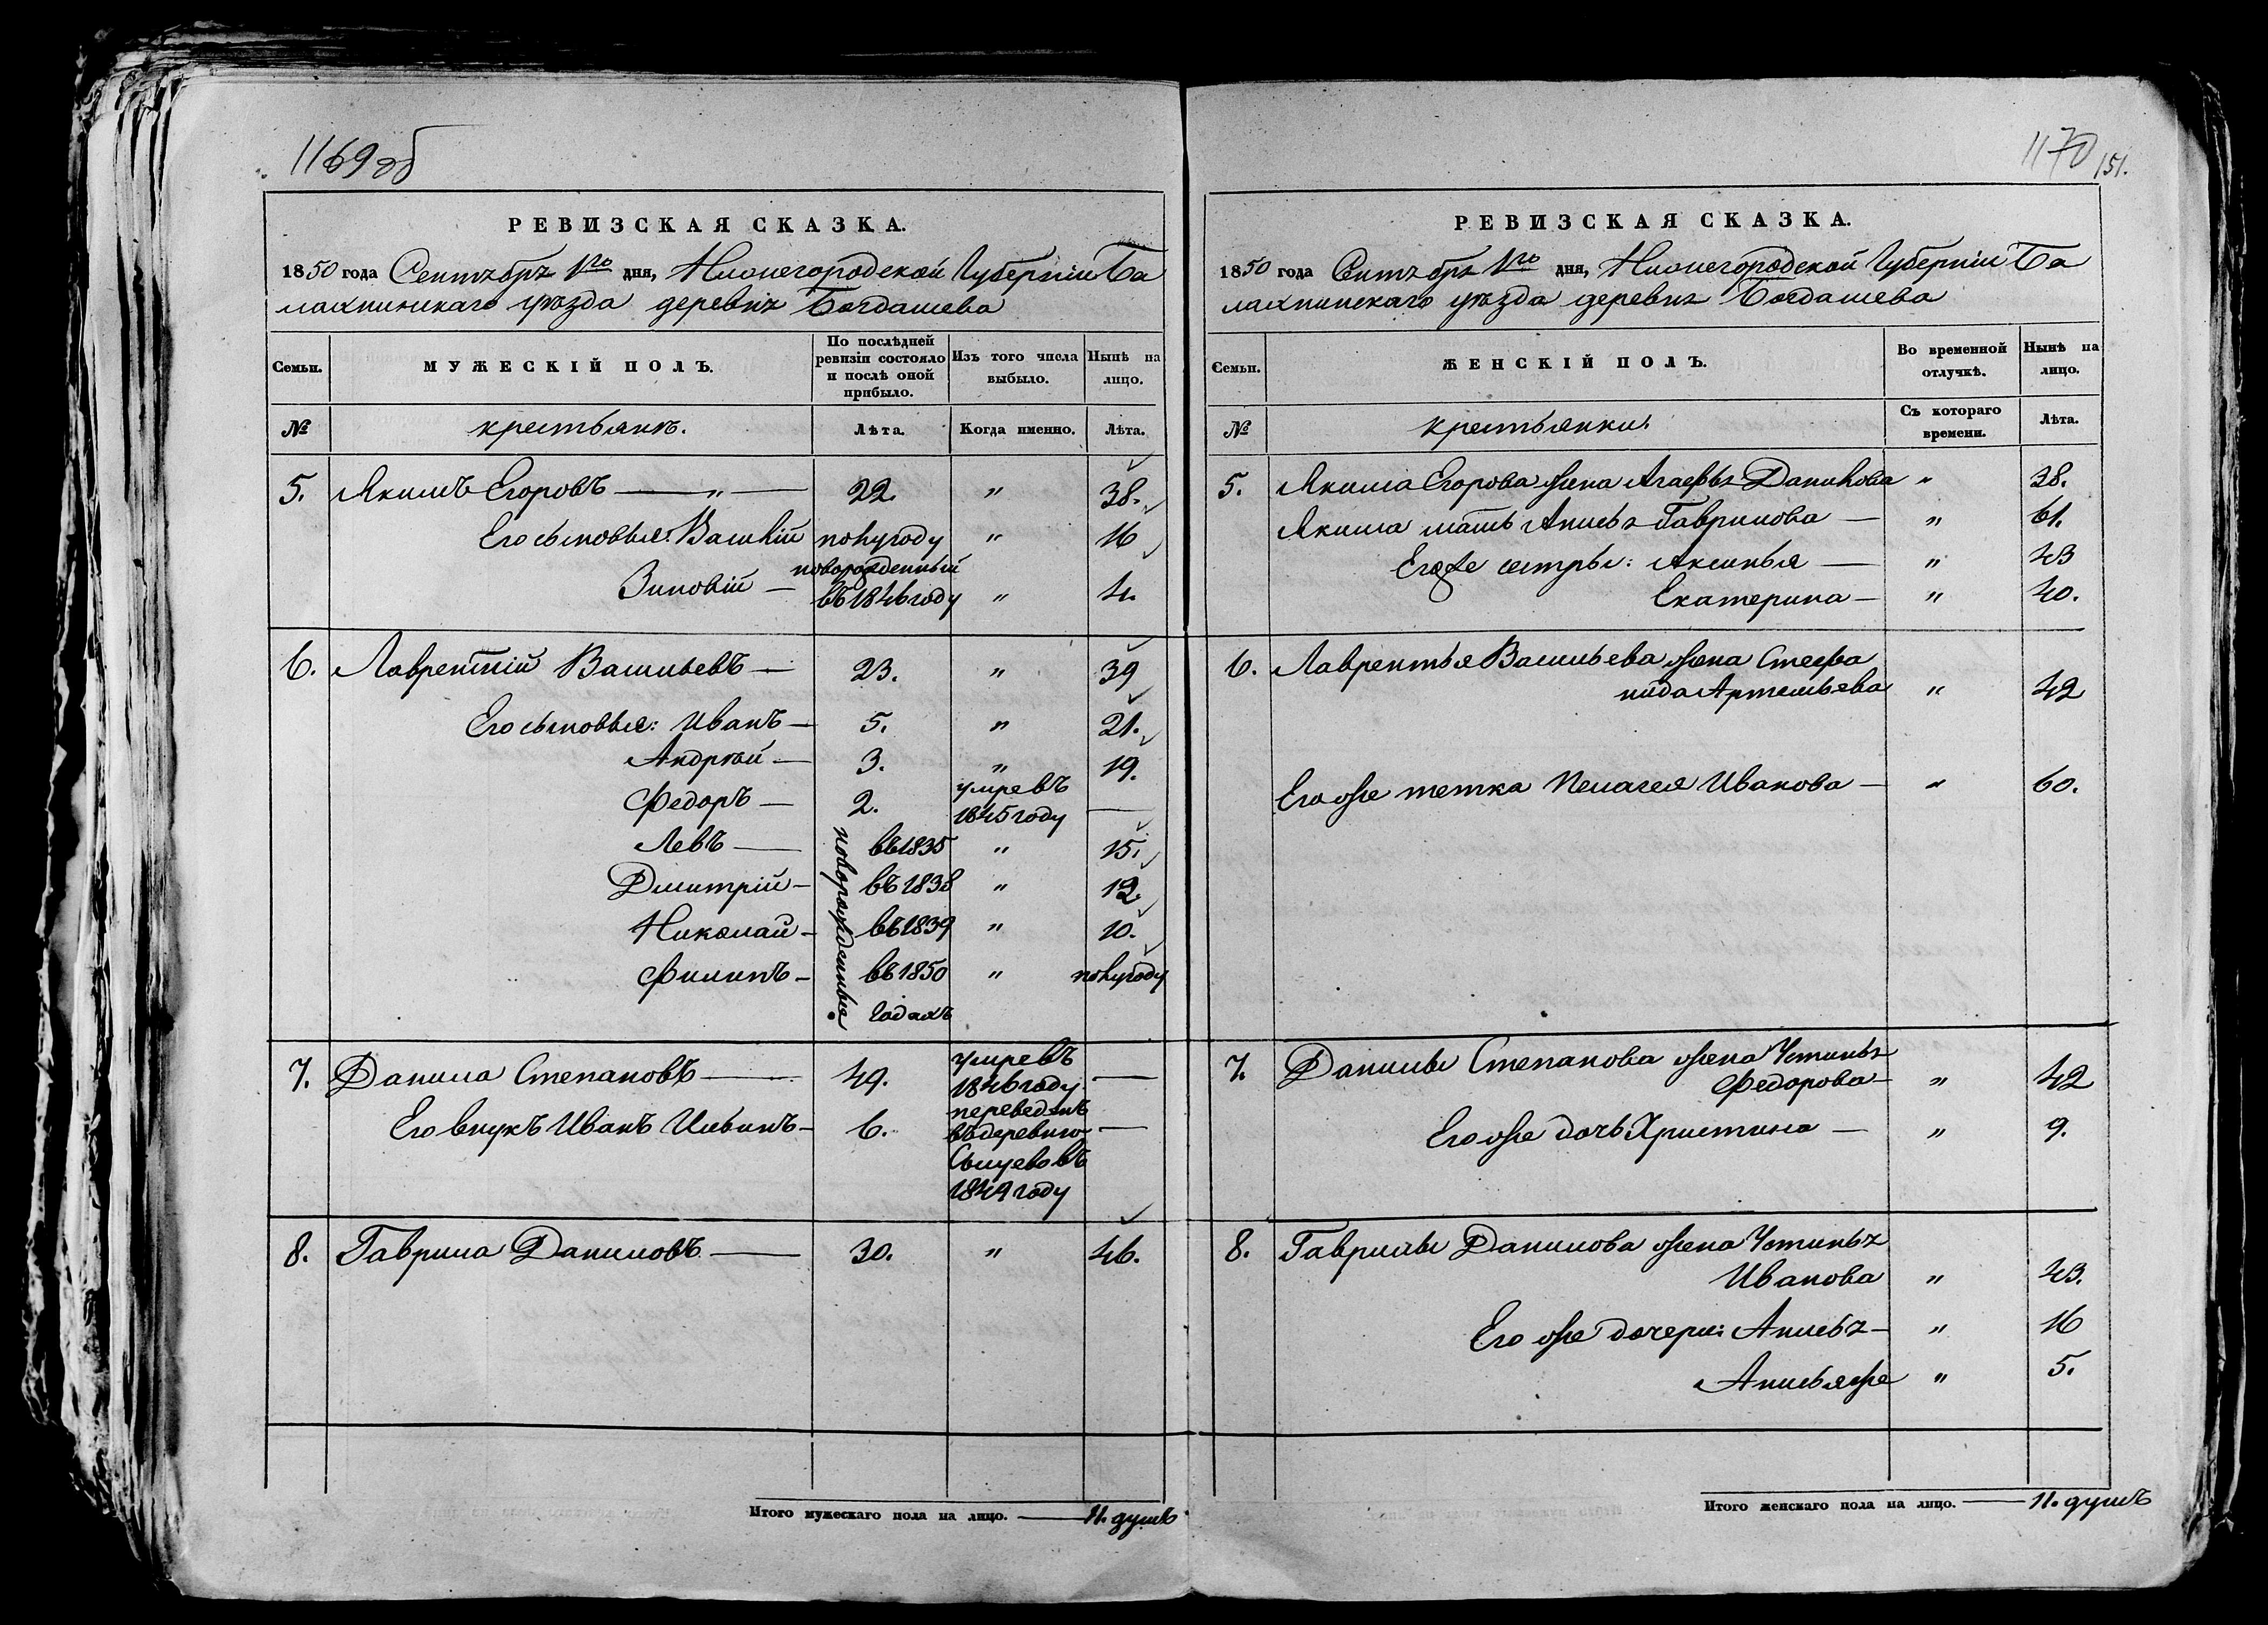 1169об
РЕВИЗСКАЯ СКАЗКА.
1850 года Сентября 1го дня, Нижегородской Губернiи Ба
лахнинскаго уѣзда деревнѣ Богдашева
Семьи.
МУЖЕСКІЙ ПОЛЪ.
По послѣдней ревизіи состояло и послѣ оной прибыло.
Изъ того числа выбыло.
Нынѣ на лицо.
№ крестьянъ. Лѣта. Когда именно. Лѣта.
5. Якимъ Егоровъ — „ — 22. „ 38.
Его сыновья: Василій полугоду „ 16
новорожденный
Зиновій — въ 1846 году „ 4.
6. Лаврентій Васильевъ — 23. „ 39
Его сыновья: Иванъ — 5. „ 21.
Андрѣй — 3. „ 19.
умре въ
Федоръ — 2. 1845 году —
новорожденные
Левъ — въ 1835 „ 15.
Дмитрій — въ 1838 „ 12.
Николай — въ 1839 „ 10.
Филипъ — въ 1850 „ полугоду
годахъ
7. Данила Степановъ — 49. умре въ 1846 году —
Его внукъ Иванъ Ильинъ — 6. переведенъ —
въ деревню
въ
1849 году
8. Гаврила Даниловъ — 30. „ 46.
Итого мужескаго пола на лицо. — 11. душъ
1170 151.
РЕВИЗСКАЯ СКАЗКА.
1850 года Сентября 1го дня, Нижегородской Губерніи Ба
лахнинскаго уѣзда деревнѣ Богдашева
Семьи.
ЖЕНСКІЙ ПОЛЪ.
Во временной отлучкѣ.
Нынѣ на лицо.
№ крестьянки. Съ котораго времени. Лѣта.
5. Якима Егорова жена Агафья Данилова „ 38.
Якима мать Анисья Гаврилова — „ 61.
Его же сестры: Аксинья — „ 43
Екатерина — „ 40.
6. Лаврентья Васильева жена Стефа
нида Артемьева „ 42
Его же тетка Пелагея Иванова — „ 60.
7. Данилы Степанова жена Устинья
Федорова — „ 42
Его же дочь Христина — „ 9.
8. Гаврилы Данилова жена Устинья
Иванова „ 43.
Его же дочери: Анисья — „ 16
Анисья же „ 5.
Итого женскаго пола на лицо. — 11. душъ